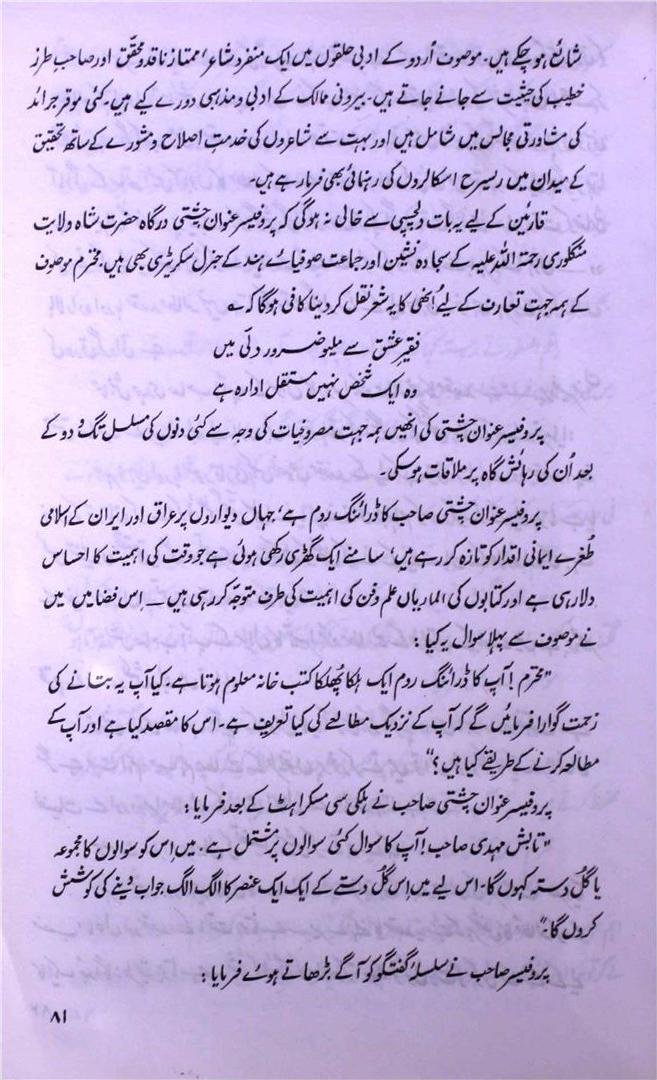 شائع ہو چکے ہیں۔ موصوف اُردو کے ادبی حلقوں میں ایک منفرد شاعر، ممتاز ناقد و محقّق اور صاحبِ طرز
خطیب کی حیثیت سے جانے جاتے ہیں۔ بیرونی ممالک کے ادبی و مذہبی دورے کیے ہیں۔ کئی موقر جرائد
کی مشاورتی مجالس میں شامل ہیں اور بہت سے شاعروں کی خدمتِ اصلاح و مشورے کے ساتھ تحقیق
کے میدان میں ریسرچ اسکالروں کی رہنمائی بھی فرما رہے ہیں۔
قارئین کے لیے یہ بات دلچسپی سے خالی نہ ہوگی کہ پروفیسر عنوان چشتی درگاہ حضرت شاہ ولایت
منگلوری رحمۃ اللہ علیہ کے سجادہ نشین اور جماعت صوفیائے ہند کے جنرل سکریٹری بھی ہیں۔ محترم موصوف
کے ہمہ جہت تعارف کے لیے اُنہی کا یہ شعر نقل کردینا کافی ہوگا کہ ؎
فقیرِ عشق سے ملیو ضرور دلّی میں
وہ ایک شخص نہیں مستقل ادارہ ہے
پروفیسر عنوان چشتی کی انھیں ہمہ جہت مصروفیات کی وجہ سے کئی دنوں کی مسلسل تگ و دو کے
بعد اُن کی رہائش گاہ پر ملاقات ہوسکی۔
پروفیسر عنوان چشتی صاحب کا ڈرائنگ روم ہے، جہاں دیوار دل پر عراق اور ایران کے اسلامی
طُغرے ایمانی اقدار کو تازہ کر رہے ہیں، سامنے ایک گھڑی رکھی ہوئی ہے جو وقت کی اہمیت کا احساس
دلا رہی ہے اور کتابوں کی الماریاں علم و فن کی اہمیت کی طرف متوجّہ کر رہی ہیں — اِس فضا میں میں
نے موصوف سے پہلا سوال یہ کیا :
"محترم! آپ کا ڈرائنگ روم ایک ہلکا پُھلکا کتب خانہ معلوم ہوتا ہے، کیا آپ یہ بتانے کی
زحمت گوارا فرمائیں گے کہ آپ کے نزدیک مطالعے کی کیا تعریف ہے۔ اس کا مقصد کیا ہے اور آپ کے
مطالعہ کرنے کے طریقے کیا ہیں؟"
پروفیسر عنوان چشتی صاحب نے ہلکی سی مسکراہٹ کے بعد فرمایا :
"تابش مہدی صاحب! آپ کا سوال کئی سوالوں پر مشتمل ہے۔ میں اِس کو سوالوں کا مجموعہ
یا گُل دستہ کہوں گا۔ اس لیے میں اِس گُل دستے کے ایک ایک عنصر کا الگ الگ جواب دینے کی کوشش
کروں گا۔"
پروفیسر صاحب نے سلسلۂ گفتگو کو آگے بڑھاتے ہوئے فرمایا :
۸۱